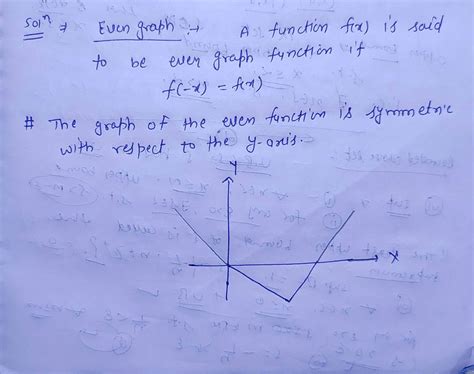 Solⁿ → Even graph :→ A function f(x) is said
to be even graph function if
f(-x) = f(x)
# The graph of the even function is symmetric
with respect to the y-axis.
Y
X